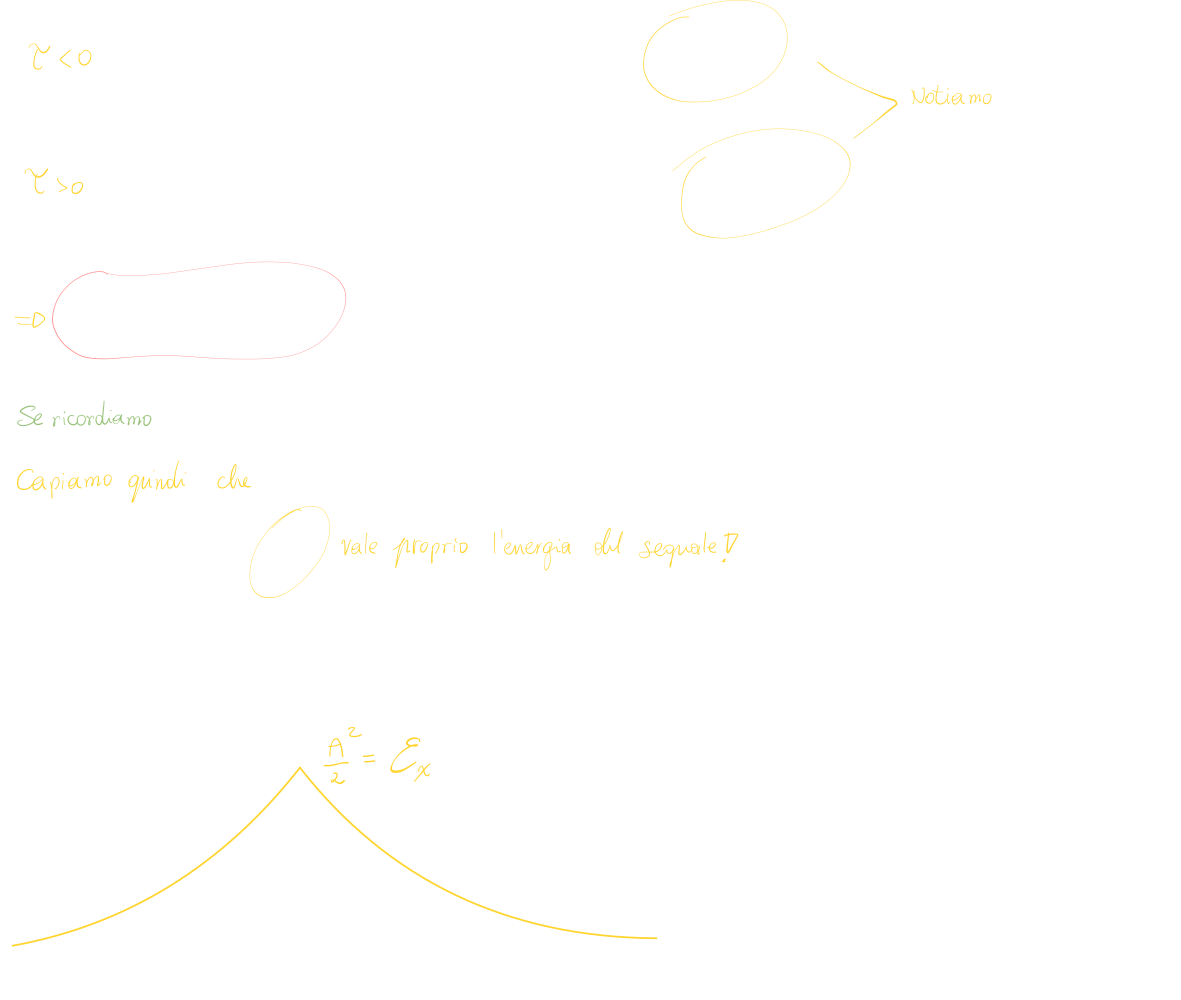 τ < 0
Notiamo
τ > 0
⇒
Se ricordiamo
Capiamo quindi che
vale proprio l'energia del sequale!
A²/2 = Ɛx